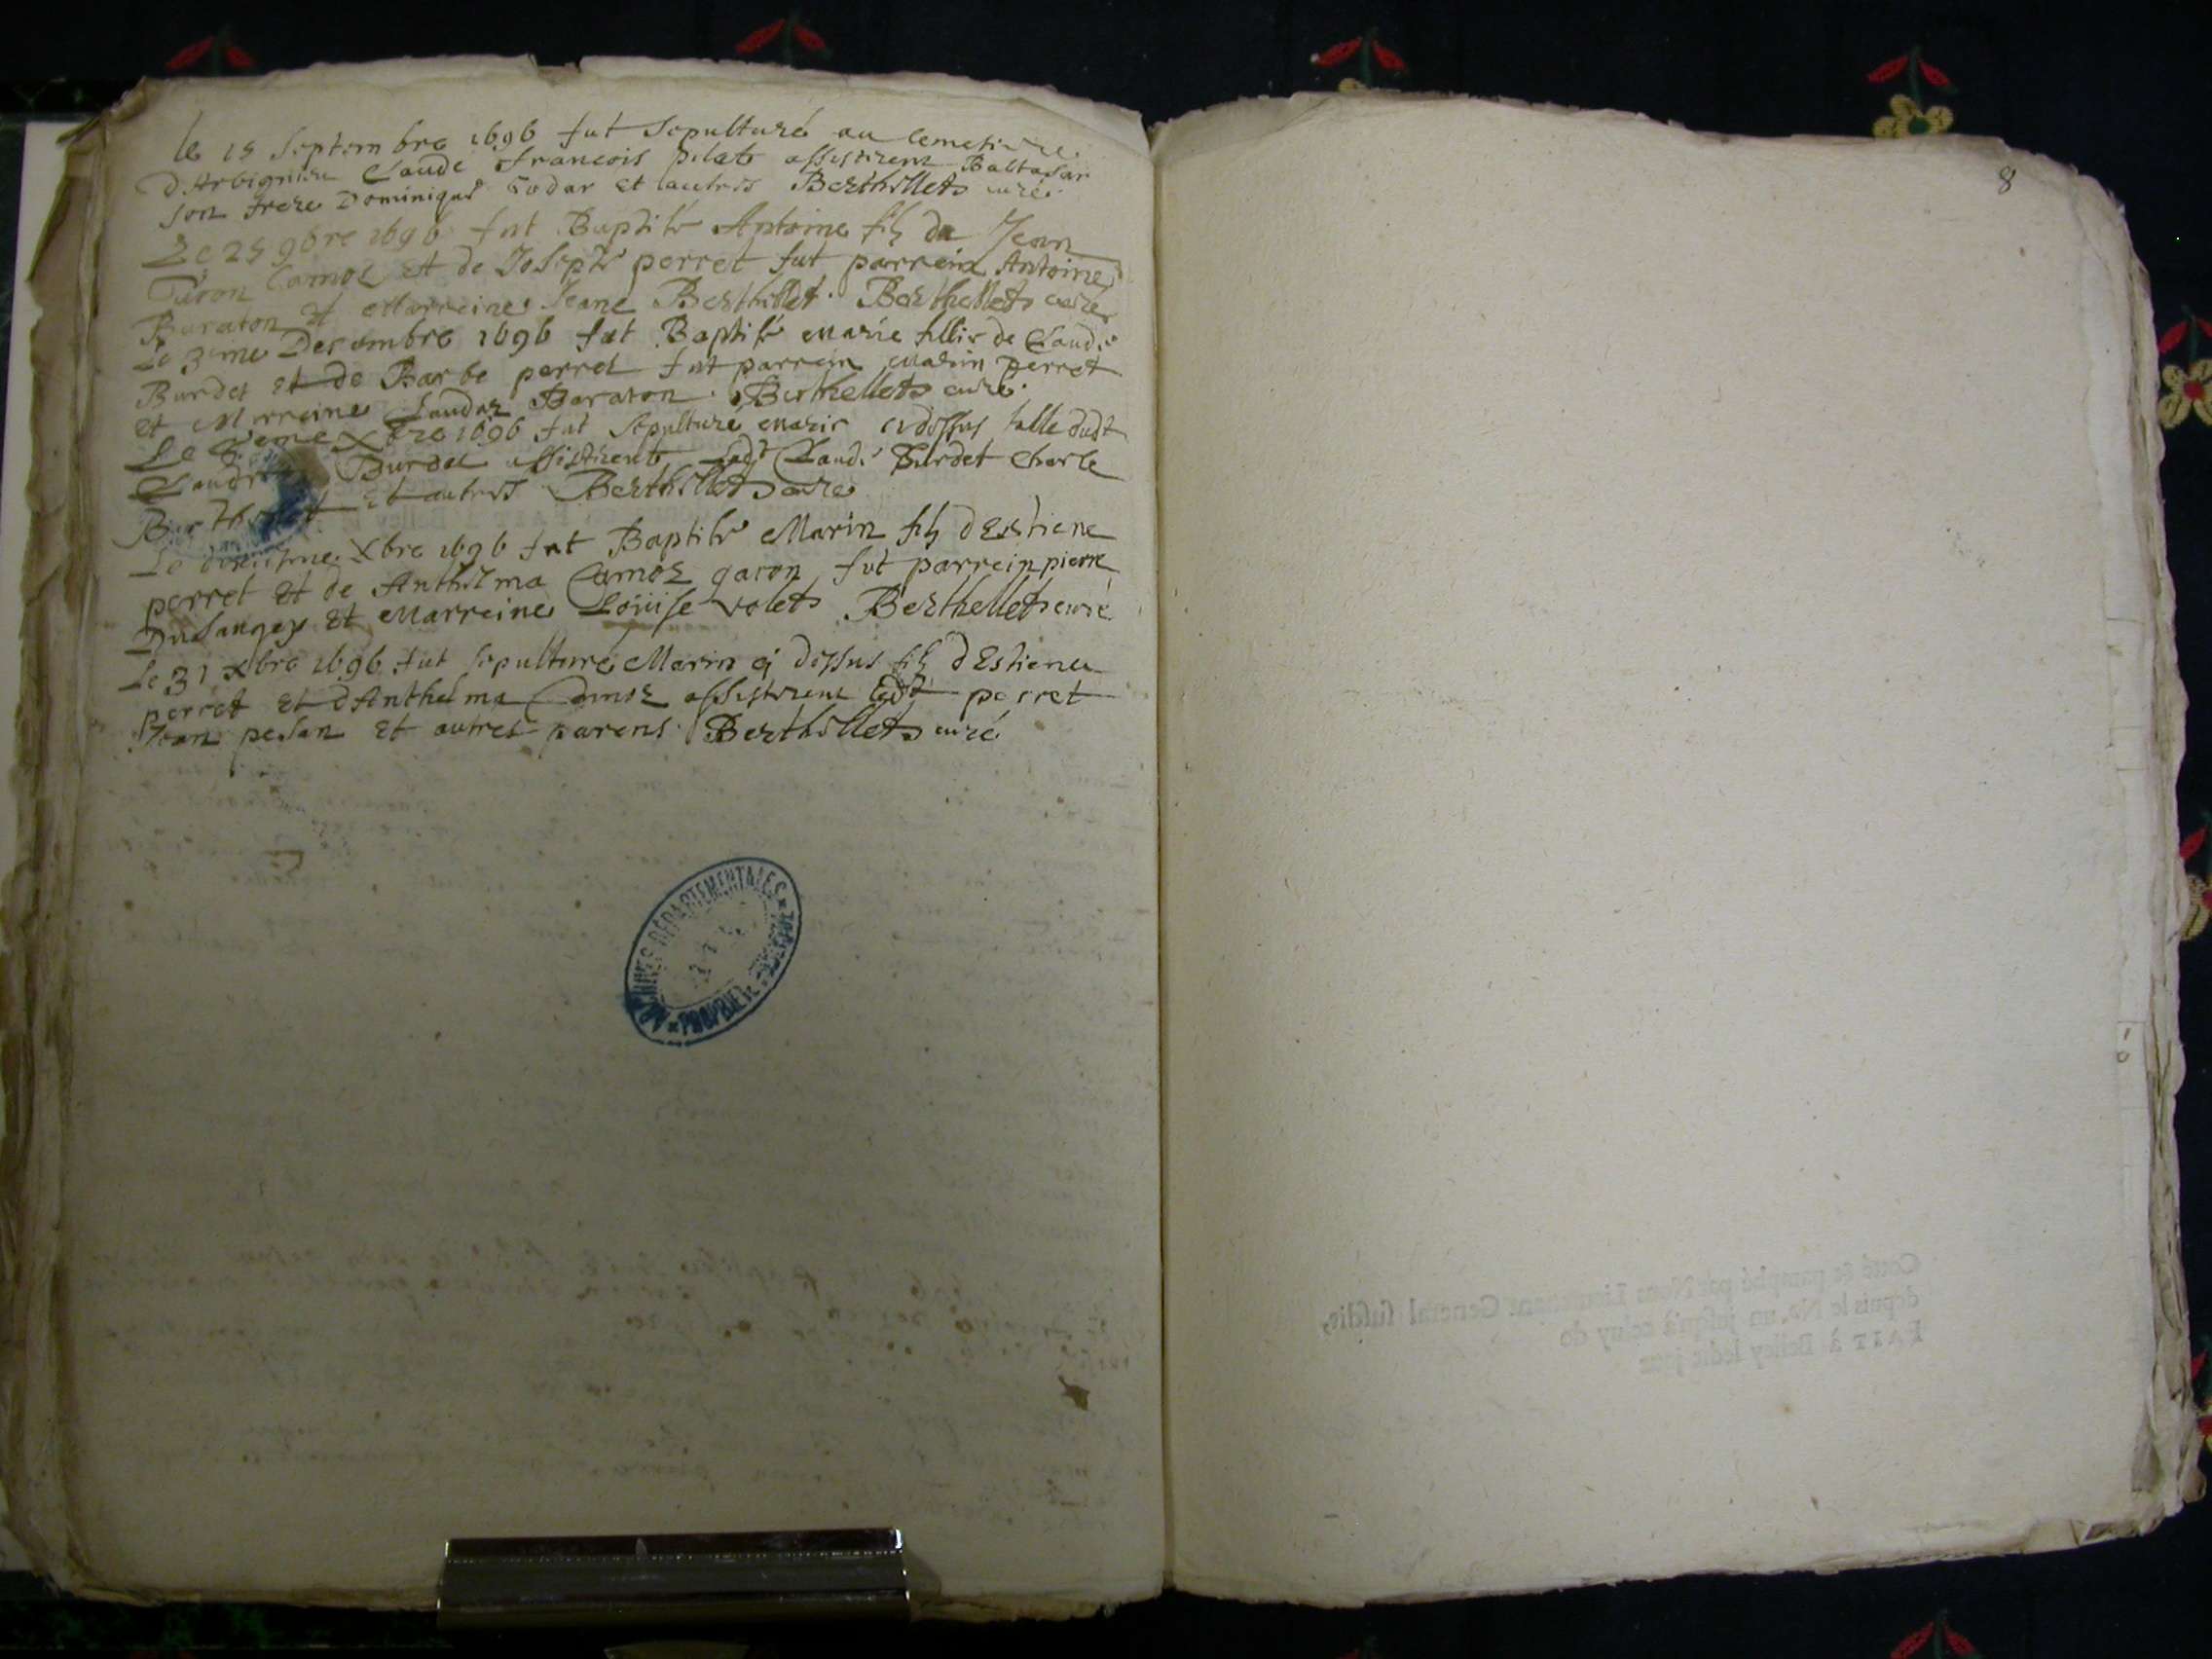 le 15 Septembre 1696 fut Sepulturé au Cemetiere
d'Arbignieu Claude francois pilate assisterent Baltasar
son frere Dominique Godar Et autres Berthellet curé
Le 25 9bre 1696 fut Baptisé Antoine filz de Jean
Camoz Et de Josepte perret fut parrein Antoine
Buraton Et Marreine Jeane Berthellet Berthellet curé
Le 3eme Decembre 1696 fut Baptisé Marie fillie de Claude
Burdet Et de Barbe perret fut parrein Marin perret
et Marreine Claudaz Baraton Berthellet curé
Le xbre 1696 fut Sepulturé Marie cydessus fille dudt
Claude Burdet assisterent Ledt Claude Burdet Charle
Berthellet Et autres Berthellet curé
Le xbre 1696 fut Baptisé Marin filz d'Estiene
perret Et de Anthelma Camoz fut parrein pierre
Dulanger Et Marreine Loüise volet Berthellet curé
Le 31 xbre 1696 fut sepulturé Marin cy dessus filz d'Estiene
perret Et d'Anthelma Camoz assisterent Ledt perret
Jean pesan Et autres parens Berthellet curé
ARCHIVES DÉPARTEMENTALES
PROPRIÉTÉ
8
Cotté & paraphé par Nous Lieutenant General susdit,
depuis le No. un jusqu'à celuy de
FAIT à Belley ledit jour